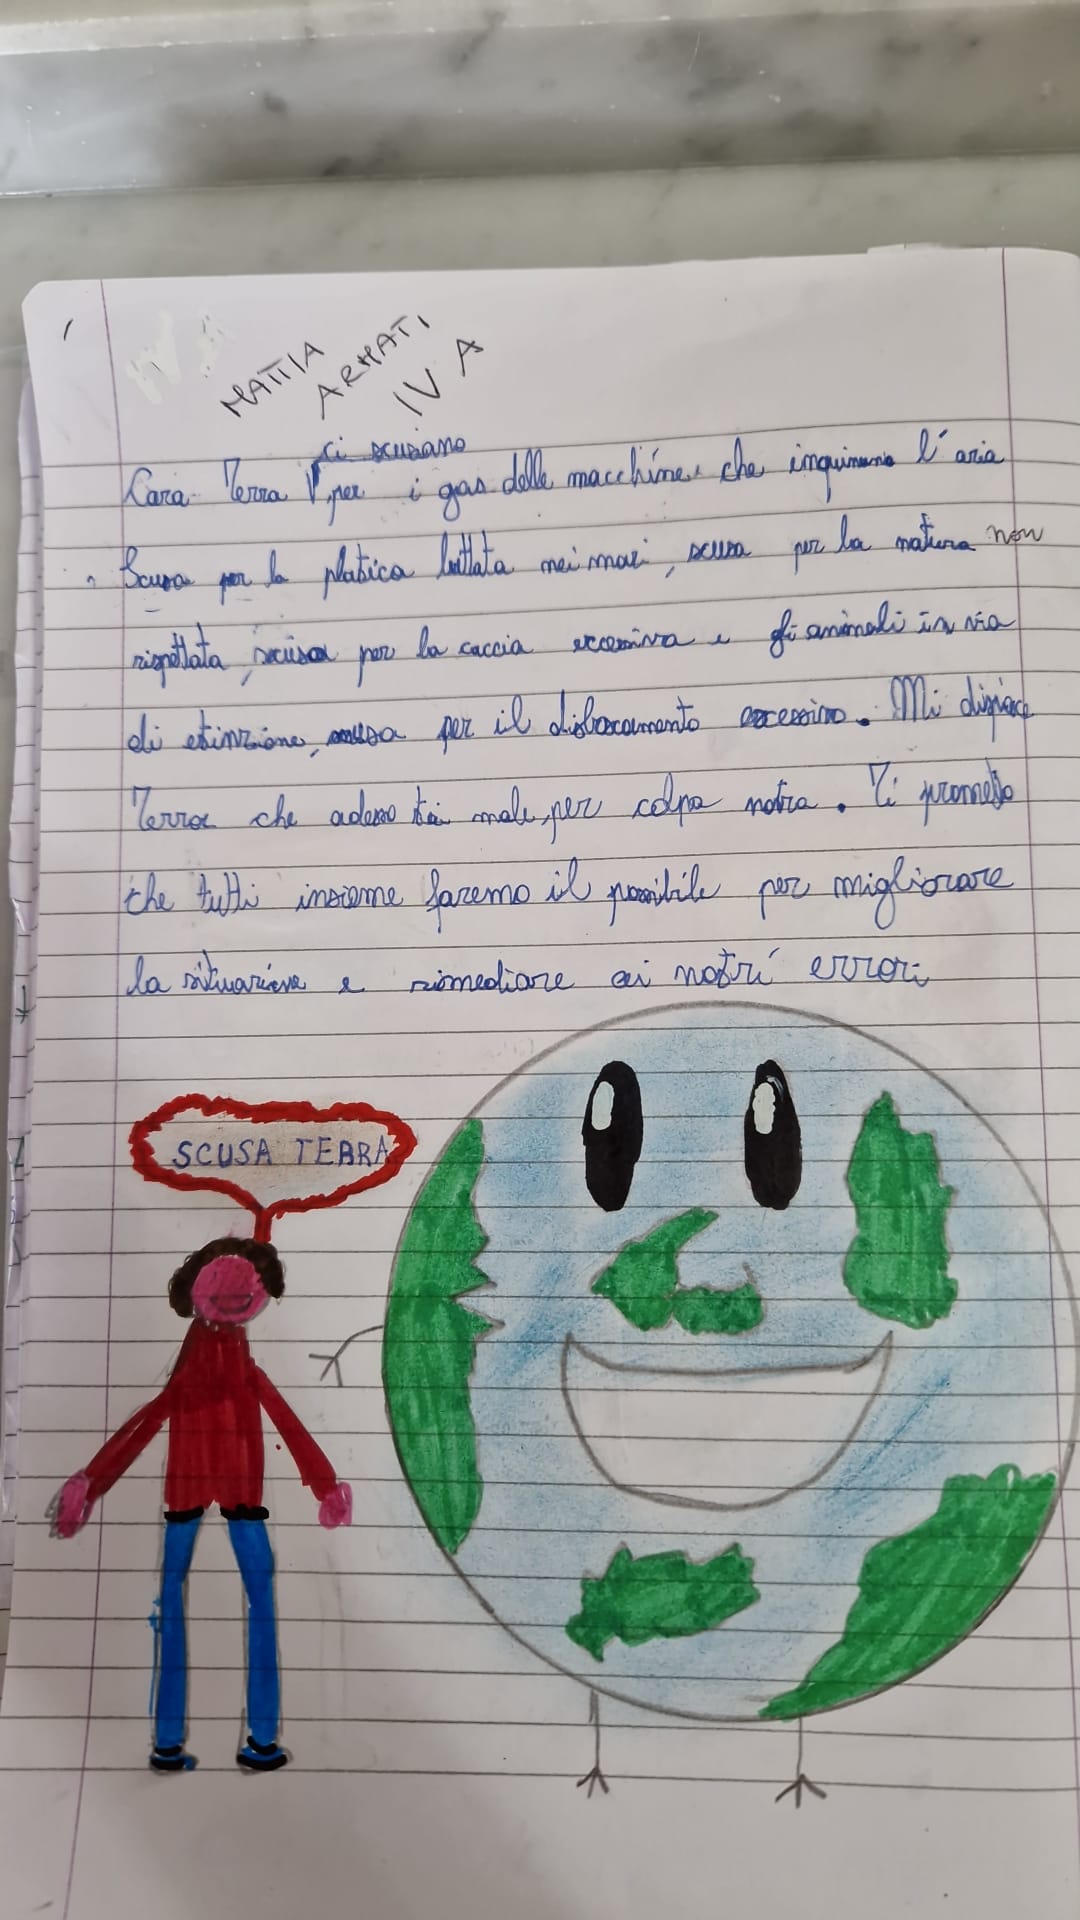 MATTIA
ARMATI
IV A
ci scusiamo
Cara Terra per i gas delle macchine che inquinano l'aria
Scusa per la platica buttata nei mari, scusa per la natura non
rispettata, scusa per la caccia eccessiva e gli animali in via
di estinzione, scusa per il disboscamento eccessivo. Mi dispiace
Terra che adesso stai male, per colpa nostra. Ti prometto
che tutti insieme faremo il possibile per migliorare
la situazione e rimediare ai nostri errori
SCUSA TERRA